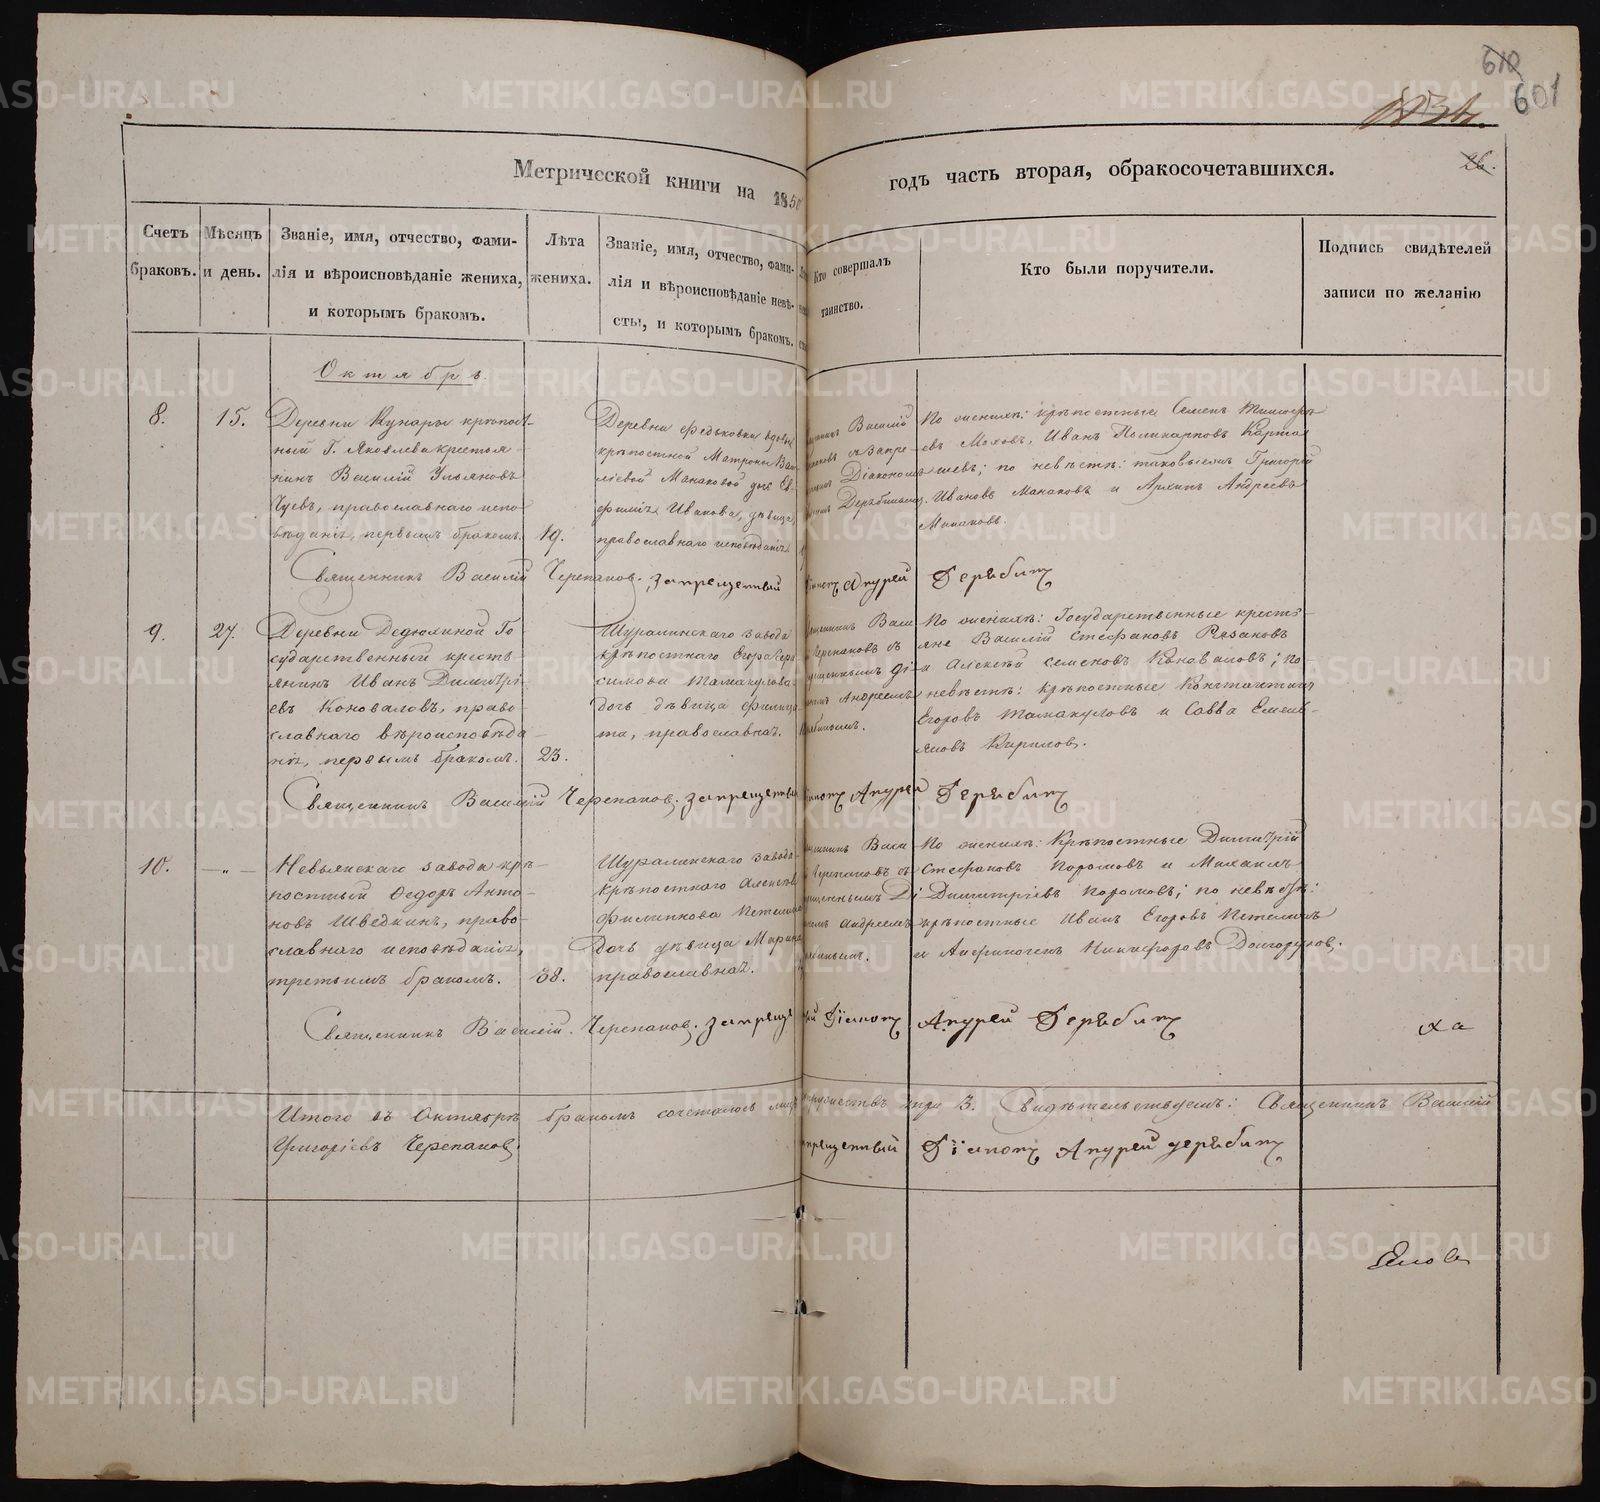 610
601
26.
Метрической книги на 185
годъ часть вторая, обракосочетавшихся.
Счетъ браковъ.
Мѣсяцъ и день.
Званіе, имя, отчество, фами-
лія и вѣроисповѣданіе жениха,
и которымъ бракомъ.
Лѣта
жениха.
Званіе, имя, отчество, фами-
лія и вѣроисповѣданіе невѣ-
сты, и которымъ бракомъ.
Кто совершалъ
таинство.
Кто были поручители.
Подпись свидѣтелей
записи по желанію
Октябрь.
8.
15.
Деревни Кунары крѣпост-
ный Г. Яковлева крестья-
нинъ Василій Ульяновъ
православнаго испо-
вѣданія, первымъ бракомъ.
19.
Деревни Федьковки вдовы
крѣпостной Матроны Васи-
ліевой Манаковой дочь Ев-
фимія Иванова, дѣвица,
православнаго исповѣданія
Василій
Діакономъ
По женихѣ: крѣпостные Семенъ
Моховъ, Иванъ Поликарповъ
по невѣстѣ: таковыежъ Григорій
Ивановъ Манаковъ и Архипъ Андреевъ
Манаковъ.
Священникъ Василій Черепановъ. Запрещенный Діаконъ Андрей Дерябинъ
9.
27.
Деревни Дедюхиной Го-
сударственный кресть-
янинъ Иванъ Димитрі-
евъ Коноваловъ, право-
славнаго вѣроисповѣда-
нія, первымъ бракомъ.
23.
Шуралинскаго завода
крѣпостнаго Егора Гера-
симова Тамакулова
дочь дѣвица Филица-
та, православная.
Васи
Черепановъ съ
Андреемъ
По женихѣ: Государственные кресть-
яне Василій Стефановъ Рязановъ
и Алексѣй Семеновъ Коноваловъ; по
невѣстѣ: крѣпостные Константинъ
Егоровъ Тамакуловъ и Савва Емель-
яновъ Кириловъ.
Священникъ Василій Черепановъ. Запрещенный Діаконъ Андрей Дерябинъ
10.
— „ —
Невьянскаго завода крѣ-
постный Ѳедоръ Анто-
новъ Шведкинъ, право-
славнаго исповѣданія,
третьимъ бракомъ.
38.
Шуралинскаго завода
крѣпостнаго Алексѣя
Филипова Петелина
дочь дѣвица Марина
православная.
Васи
Черепановъ съ
Ді
Андреемъ
По женихѣ: Крѣпостные Димитрій
Стефановъ и Михаилъ
Димитріевъ по невѣстѣ:
крѣпостные Иванъ Егоровъ Петелинъ
и Анфиногенъ Никифоровъ Долгоруковъ.
Священникъ Василій Черепановъ. Запрещенный Діаконъ Андрей Дерябинъ
Итого въ Октябрѣ бракомъ сочеталось лицъ супружествъ три 3. Свидѣтельствуемъ: Священникъ Василій
Григоріевъ Черепановъ. Запрещенный Діаконъ Андрей Дерябинъ
METRIKI.GASO-URAL.RU